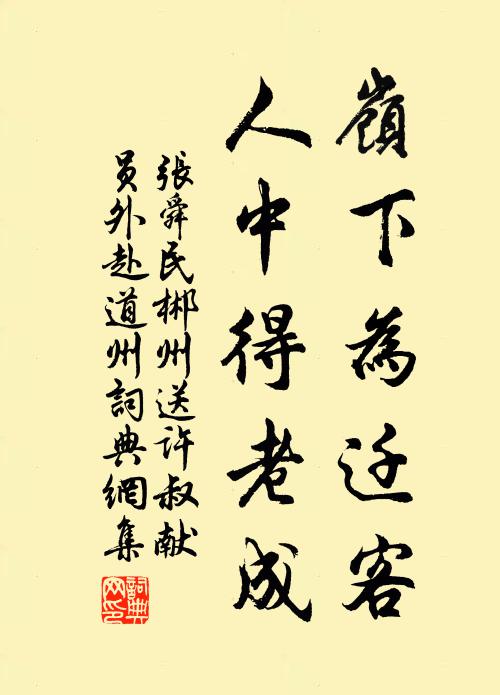 嶺下為迁客
人中得老成
張舜民郴州送许叔献
员外赴道州詞典網集